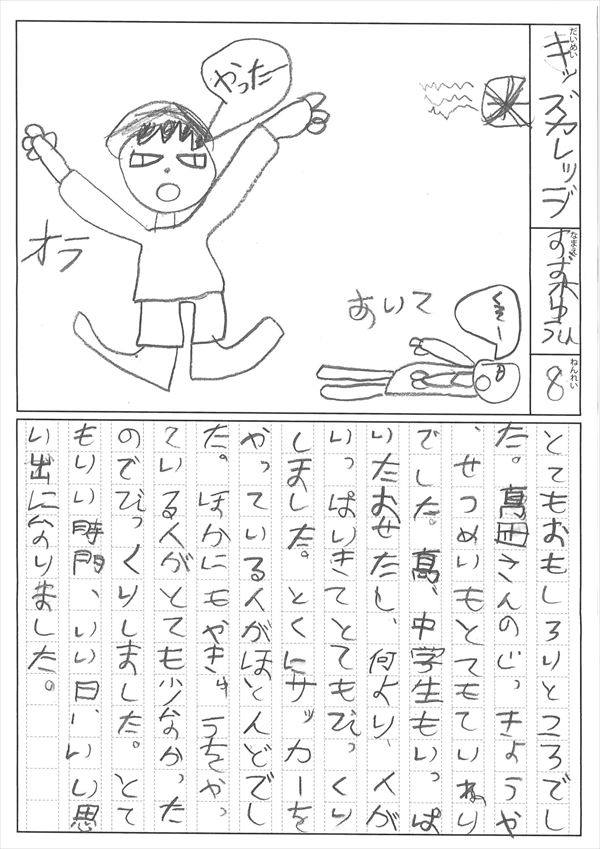 だいめい
キッズカレッジ
なまえ
ねんれい
8
やった
オラ
あいて
くそー
とてもおもしろいところでし
た。髙田さんのじっきょうや
、せつめいもとてもていねい
でした。髙、中学生もいっぱ
いたおせたし、何より、人が
いっぱいきてとてもびっくり
しました。とくにサッカーを
やっている人がほとんどでし
た。ほかにもやきゅうをやっ
ている人がとても少なかった
のでびっくりしました。とて
もいい時間、いい日、いい思
い出になりました。